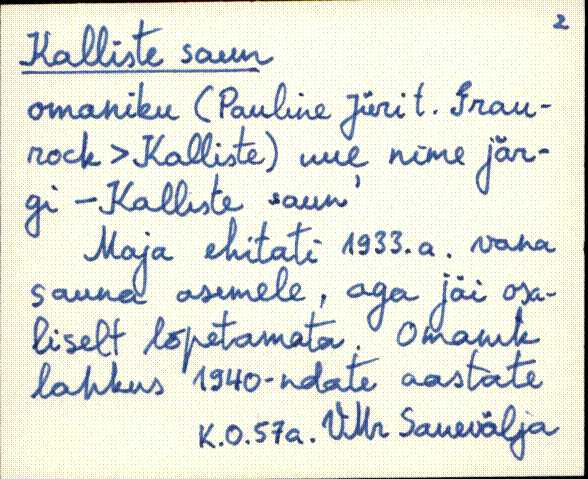 2
Kalliste saun
omaniku (Pauline Jüri t. Frau-
rock > Kalliste) uue nime jär-
gi - Kalliste saun'
Maja ehitati 1933. a. vana
sauna asemele, aga jäi osa-
liselt lõpetamata. Omanik
lahkus 1940-ndate aastate
K.O. 57a. VMr Sauevälja